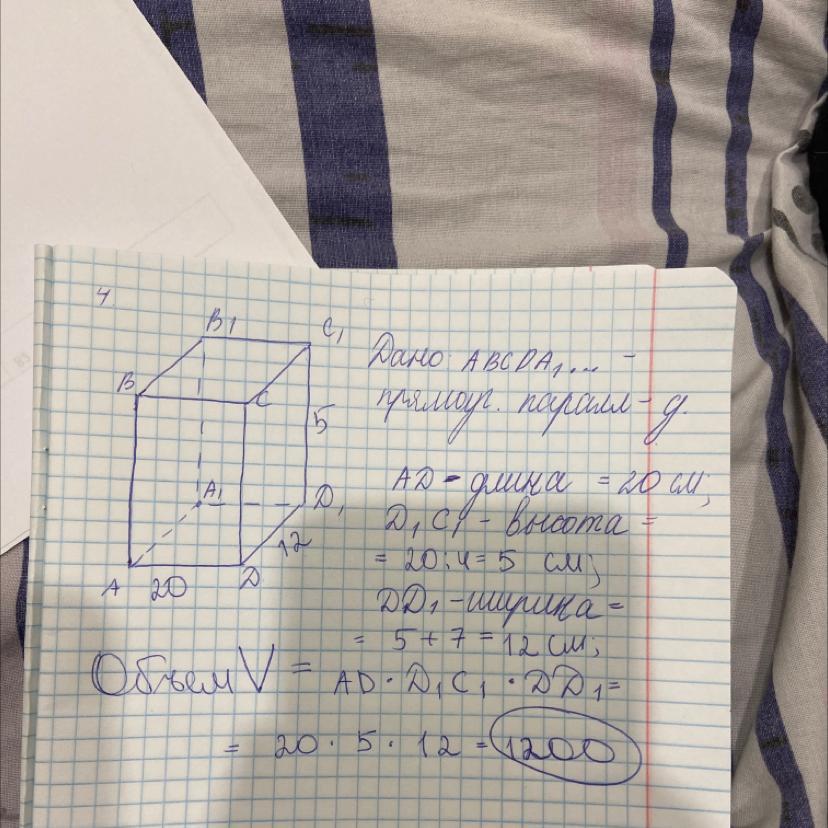 4.
B1
C1
B
C
5
A1
D1
12
A
20
D
Дано: ABCDA1... -
прямоуг. паралл-д.
AD - длина = 20 см;
D1C1 - высота =
= 20:4 = 5 см;
DD1 - ширина =
= 5 + 7 = 12 см;
Объем V =
AD · D1C1 · DD1 =
= 20 · 5 · 12 = 1200